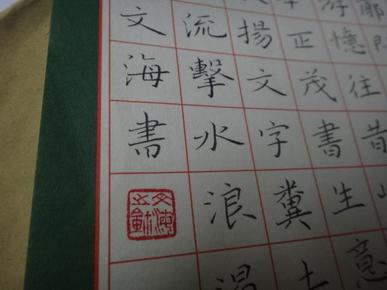 游憶往昔
正茂書生意
揚文字糞土
流擊水浪遏
文海書
文海